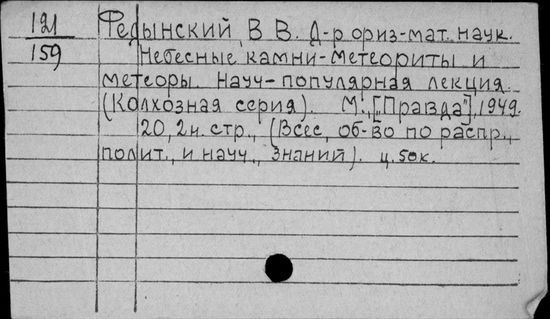 121
159
Федынский, В. В. Д-р физ-мат. наук.
Небесные камни-метеориты и
метеоры. Науч-популярная лекция.
(Колхозная серия). М., ["Правда"], 1949.
20, 2н. стр., (Всес, об-во по распр.,
полит., и науч., знаний). ц. 50к.